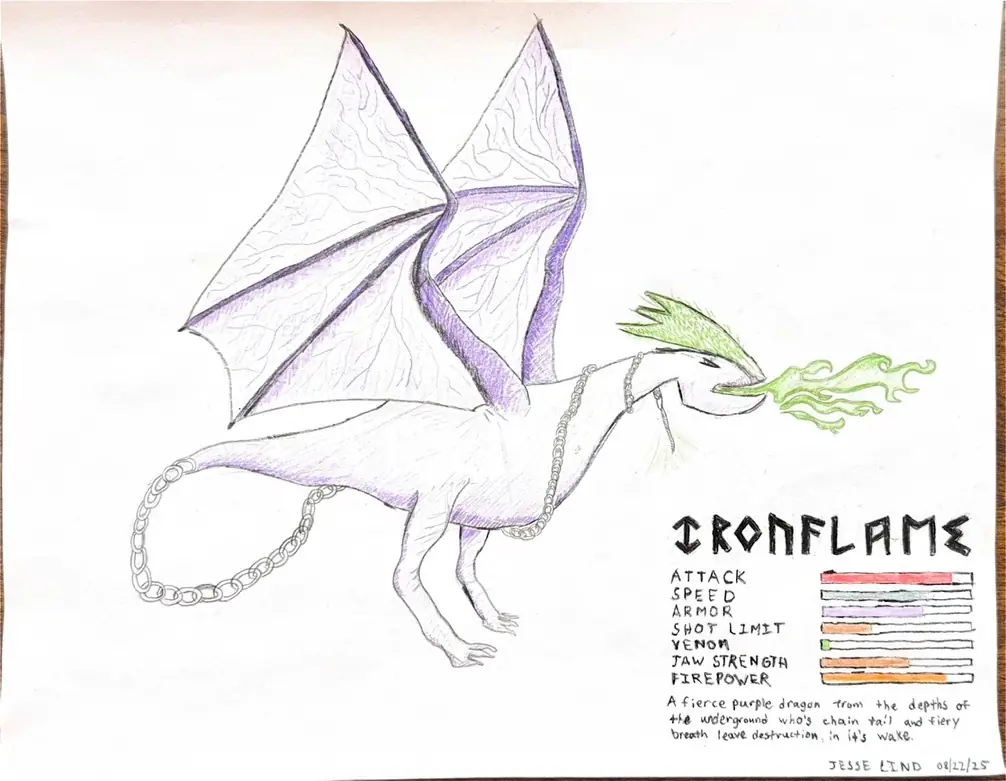 IRONFLAME
ATTACK
SPEED
ARMOR
SHOT LIMIT
VENOM
JAW STRENGTH
FIREPOWER
A fierce purple dragon from the depths of
the underground who's chain tail and fiery
breath leave destruction, in it's wake.
JESSE LIND 08/22/25